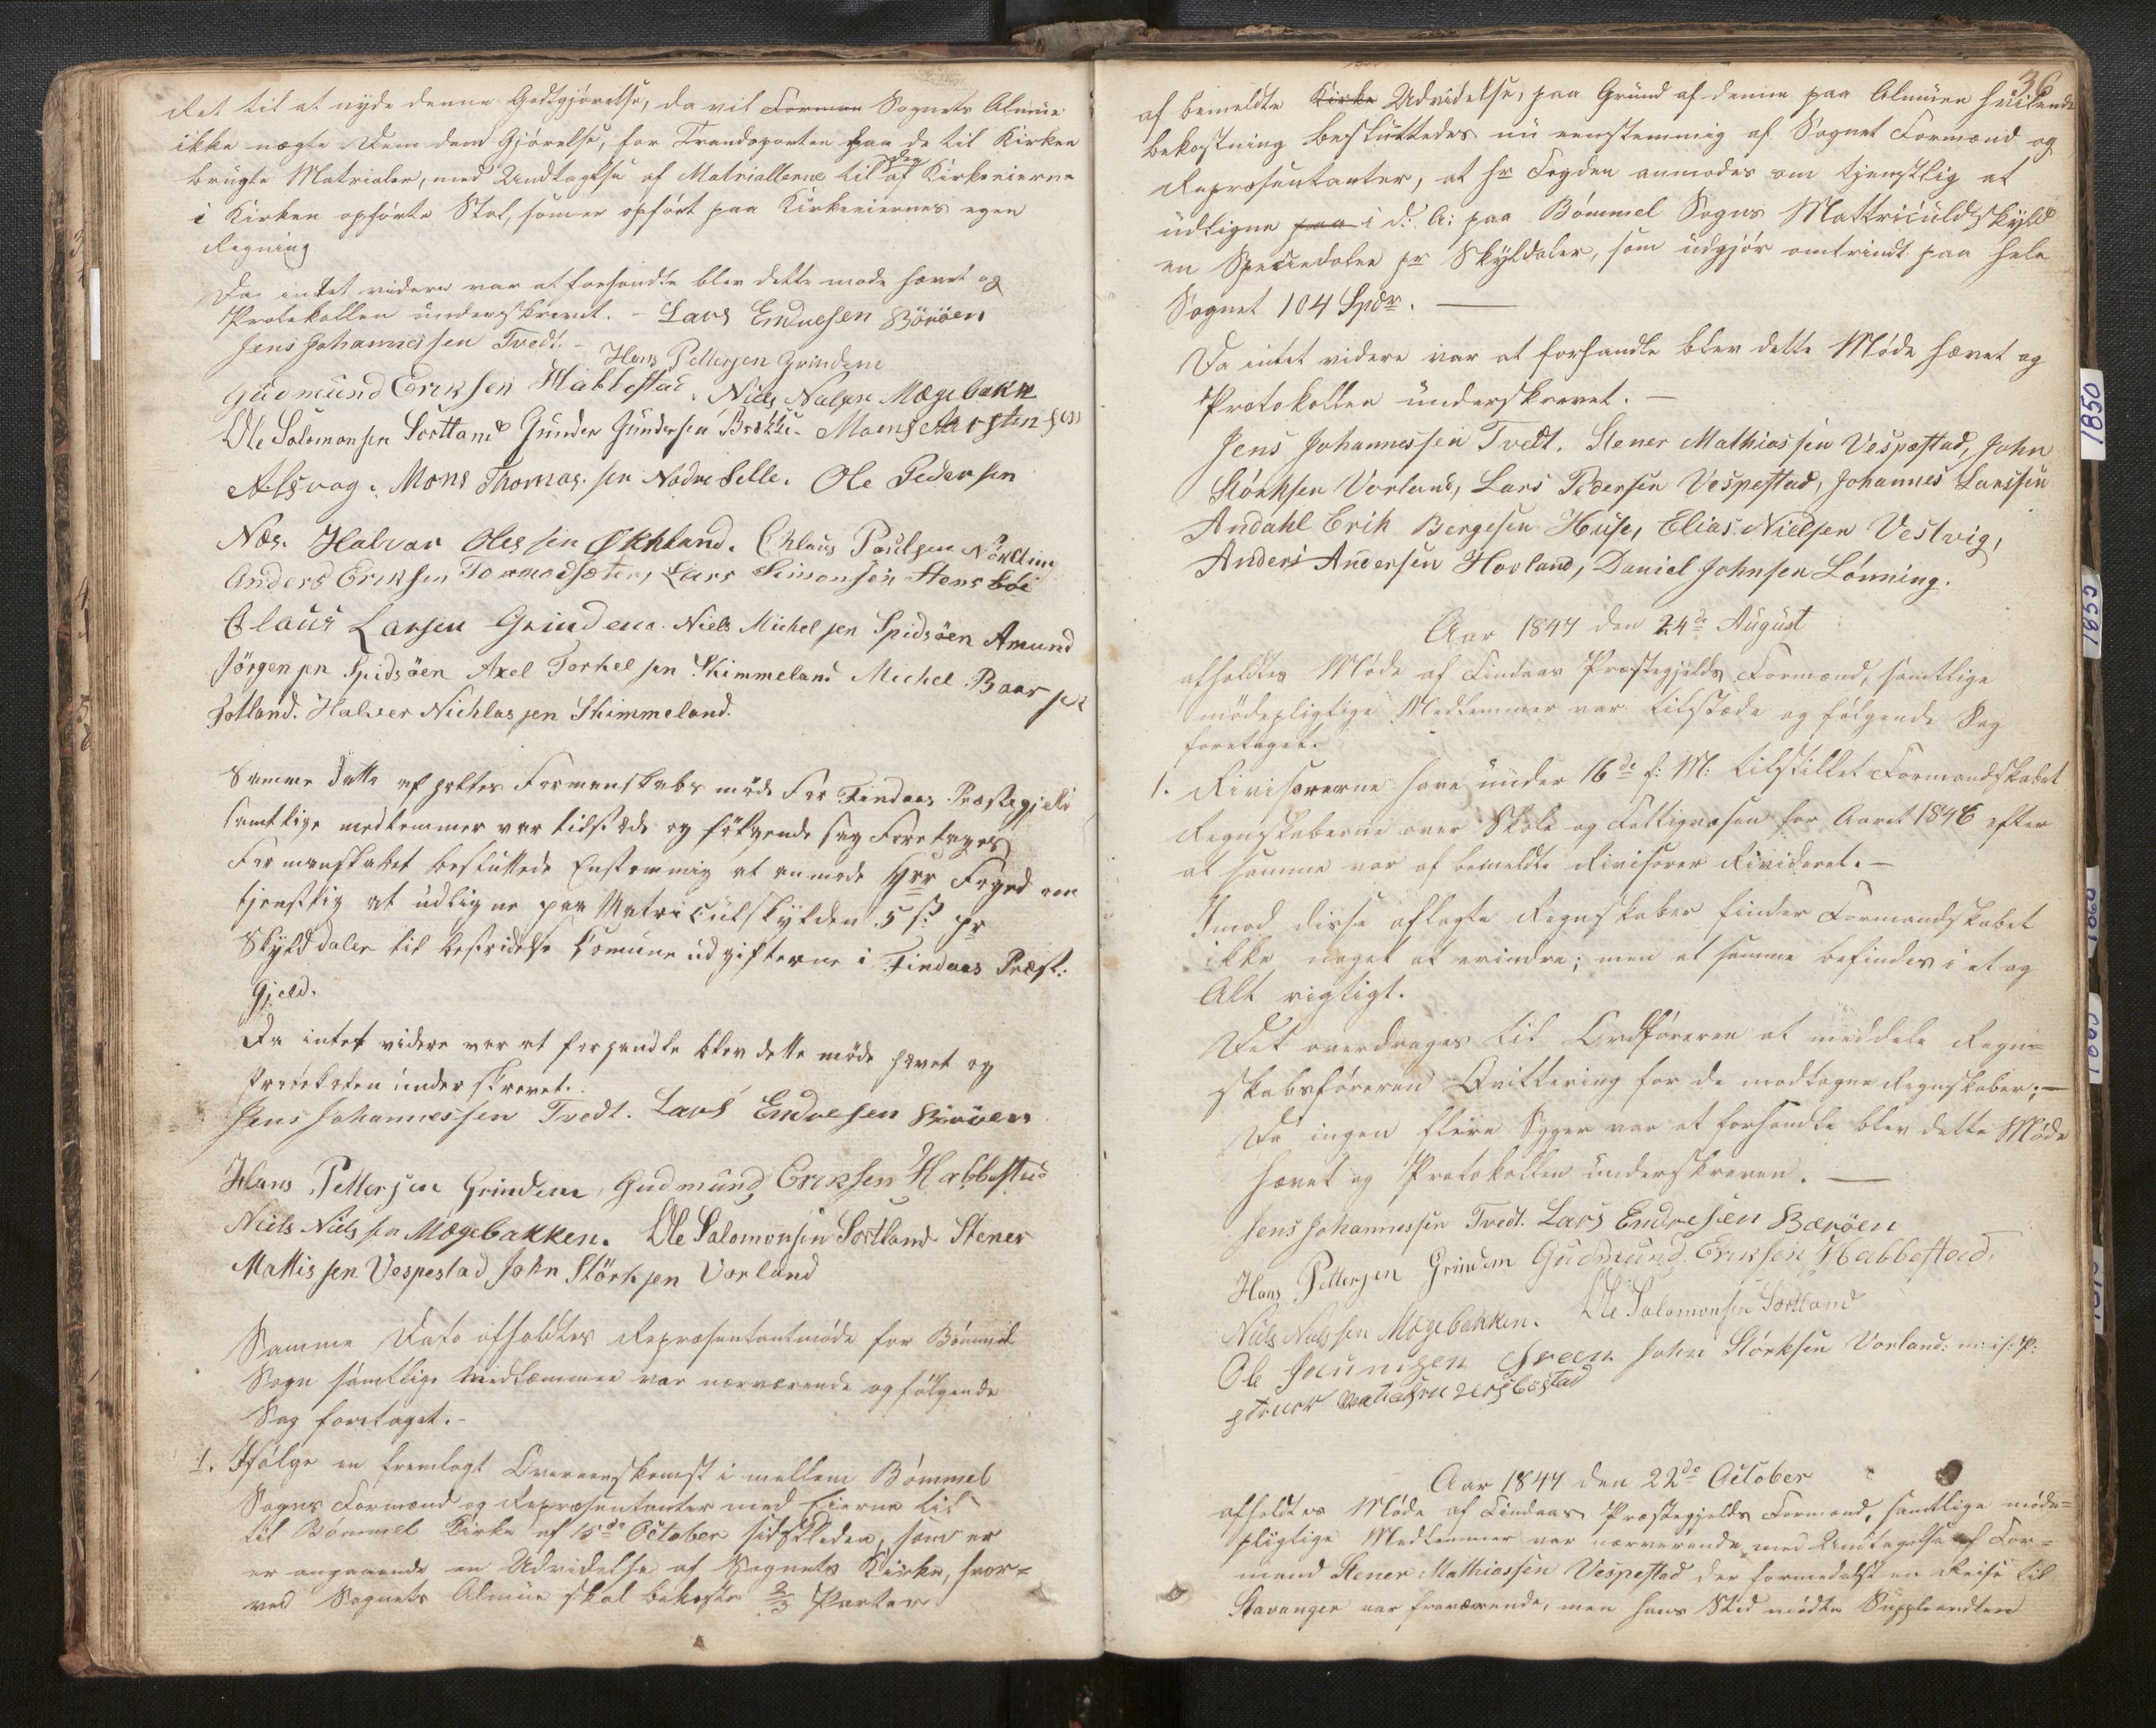 det til at nyde denne Godtgjørelse, da vil Forman Sognets Almue
ikke nægte Dem den Gjørelse, for Transporten paa de til Kirken
brugte Matrialer, med Undtagelse af Matriallerne til af Kirkeeierne
i Kirken opførte Stol, som er opført paa Kirkeeiernes egen
Regning
Da intet videre var at forhandle blev dette møde hævet og
Protokollen underskrevet. - Lars Endresen Böröen
Jens Johannessen Tvedt. -
Hans Pettersen Grindem
Gudmund Eriksen Habbestad, Niels Nielsen Mægebakk
Ole Salomonsen Sortland Gunder Gundersen Moens Aarstensen
Alsvag. Mons Thomas.sen Nedre Selle. Ole Pedersen
Næs. Halvar Olessen Økhland. Chlaus Paulsen
Anders Eriksen Tormodsæter, Lars Simonsen Stensbøe
Claus Larsen Grindem. Niels Michelsen Spidsöen Amund
Jörgensen Spidsöen Axel Torkelsen Skimmeland Michel Baarsen
Totland. Halver Nichlassen Skimmeland.
Samme Datto afholtes Formanskabs møde for Findaas Præstegjeld
samtlige medlemmer var tilstæde og følgende sag Foretages
Formanskabet besluttede Enstemmig at anmode Hrr Foged om
tjenstlig at udligne paa Matriculskylden 5 s. pr
Skylddaler til bestridelse Comune udgifterne i Findaas Præst:
gjeld.
Da intet videre var at forhandle blev dette møde hævet og
Protokolen underskrevet.
Jens Johannessen Tvedt. Lars Endresen Böröen
Hans Pettersen Grindem, Gudmund Eriksen Habbestad
Niels Nielssen Mægebakken. Ole Salomonsen Sortland Stener
Mattissen Vespestad John Störksen Vorland
Samme Dato afholdtes Repræsentantmøde for Bømmel
Sogn samtlige Medlæmmer var nærværende og følgende
Sag foretaget. -
1. Ifølge en fremlagt Overeenskomst i mellem Bømmel
Sogns Formænd og Repræsentanter med Eierne til
til Bømmel Kirke af 15de October sidstleden, som er
er angaaende en Udvidelse af Sognets Kirke, hvor=
ved Sognets Almue skal bekoste 2/3 Parter
36
af bemeldte Kirke Udvidelse, paa Grund af denne paa Almuen hvilende
bekostning besluttedes nu eenstemmig af Sognet Formænd og
Repræsentanter, at hr Fogden anmodes om tjenstlig at
udligne paa i d: A: paa Bømmel Sogns Mattriculdskyld
en Speciedaler pr Skyldaler, som udgjør omtrindt paa hele
Sognet 104 Spdr. —
Da intet videre var at forhandle blev dette Møde hævet og
Protokollen underskrevet. —
Jens Johannessen Tvedt. Stener Mathiassen Vespestad, John
Störksen Vorland, Lars Pedersen Vespestad, Johannes Larssen
Andahl Erik Bergesen Huse, Elias Nielsen Vestvig,
Anders Andersen Hovland, Daniel Johnsen Lønning.
Aar 1847 den 24de August
afholdtes Møde af Findaas Præstegjelds Formænd, samtlige
mødepligtige Medlemmer var tilstæde og følgende Sag
foretaget.
1. Rivisorerne have under 16de f: M: tilstillet Formandskabet
Regnskaberne over Skole og Fattigvæsen for Aaret 1846 efter
at samme var af bemeldte Rivisorer Rivideret. —
Imod disse aflagte Regnskaber finder Formandskabet
ikke noget at erindre; men at samme befindes i et og
Alt rigtigt.
Det overdrages til Ordføreren at meddele Regn=
skabsføreren Qvittering for de modtagne Regnskaber; —
Da ingen flere Sager var at forhandle blev dette Møde
hævet og Protokollen underskreven. —
Jens Johannessen Tvedt. Lars Endresen Barøen
Hans Pettersen Grindem Gudmund Eriksen Habbestad.
Niels Nielssen Mægebakken. Ole Salomonsen Sortland
Ole John Störksen Vorland:
Aar 1847 den 22de October
afholdtes Møde af Findaas Præstegjelds Formænd, samtlige møde=
pligtige Medlemmer var nærværende med Undtagelse af For=
mand Stener Mathiassen Vespestad der formedelst en Reise til
Stavanger var fraværende, men hans Sted mødte Suppleandten
1850
1855
1860
1865